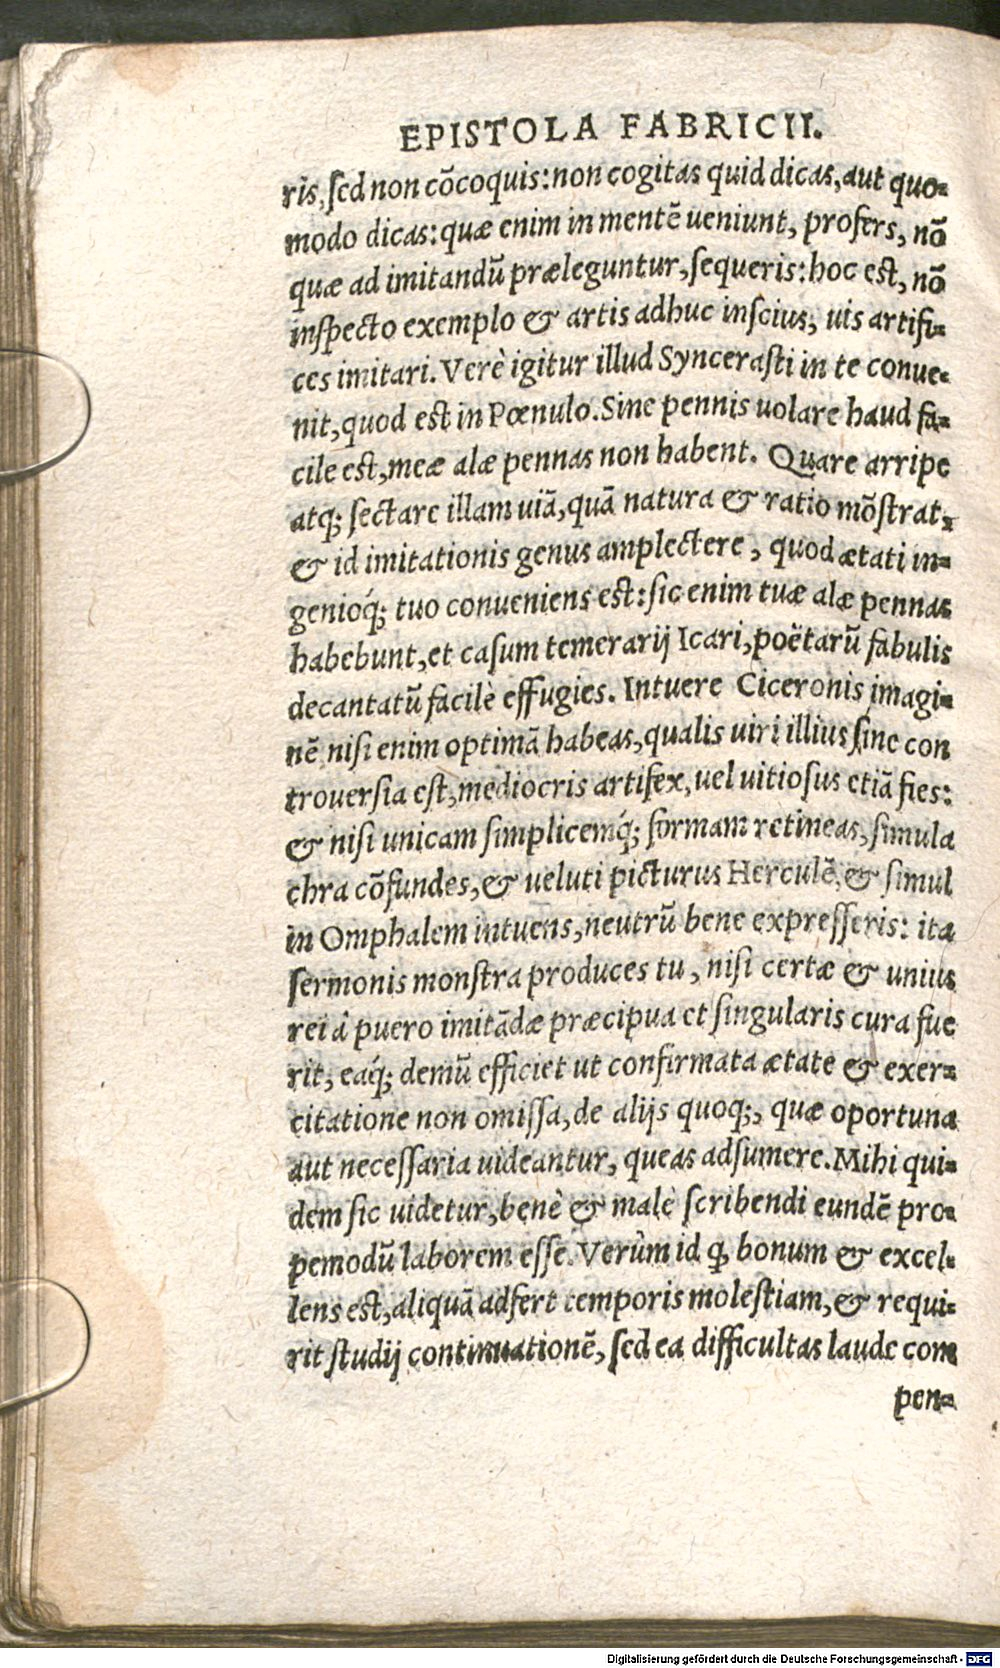 EPISTOLA FABRICII.
ris, sed non cõcoquis: non cogitas quid dicas, aut quo-
modo dicas: quæ enim in mentẽ ueniunt, profers, nõ
quæ ad imitandũ præleguntur, sequeris: hoc est, nõ
inspecto exemplo & artis adhuc inscius, uis artifi-
ces imitari. Verè igitur illud Syncerasti in te conue-
nit, quod est in Pœnulo. Sine pennis uolare haud fa-
cile est, meæ alæ pennas non habent. Quare arripe
atq; sectare illam uiã, quã natura & ratio mõstrat,
& id imitationis genus amplectere, quod ætati in-
genioq́; tuo conueniens est: sic enim tuæ alæ pennas
habebunt, et casum temerarij Icari, poëtarũ fabulis
decantatũ facilè effugies. Intuere Ciceronis imagi-
nẽ nisi enim optimã habeas, qualis uiri illius sine con
trouersia est, mediocris artifex, uel uitiosus etiã fies:
& nisi unicam simplicemq́; formam retineas, simula
chra cõfundes, & ueluti picturus Herculẽ, & simul
in Omphalem intuens, neutrũ bene expresseris: ita
sermonis monstra produces tu, nisi certæ & unius
rei â puero imitãdæ præcipua et singularis cura fue
rit, eaq́; demũ efficiet ut confirmata ætate & exer-
citatione non omissa, de alijs quoq;, quæ oportuna
aut necessaria uideantur, queas adsumere. Mihi qui-
dem sic uidetur, benè & malè scribendi eundẽ pro-
pemodũ laborem esse. Verùm id ꝙ bonum & excel-
lens est, aliquã adfert temporis molestiam, & requi-
rit studij continuationẽ, sed ea difficultas laude com
pen-
Digitalisierung gefördert durch die Deutsche Forschungsgemeinschaft - DFG